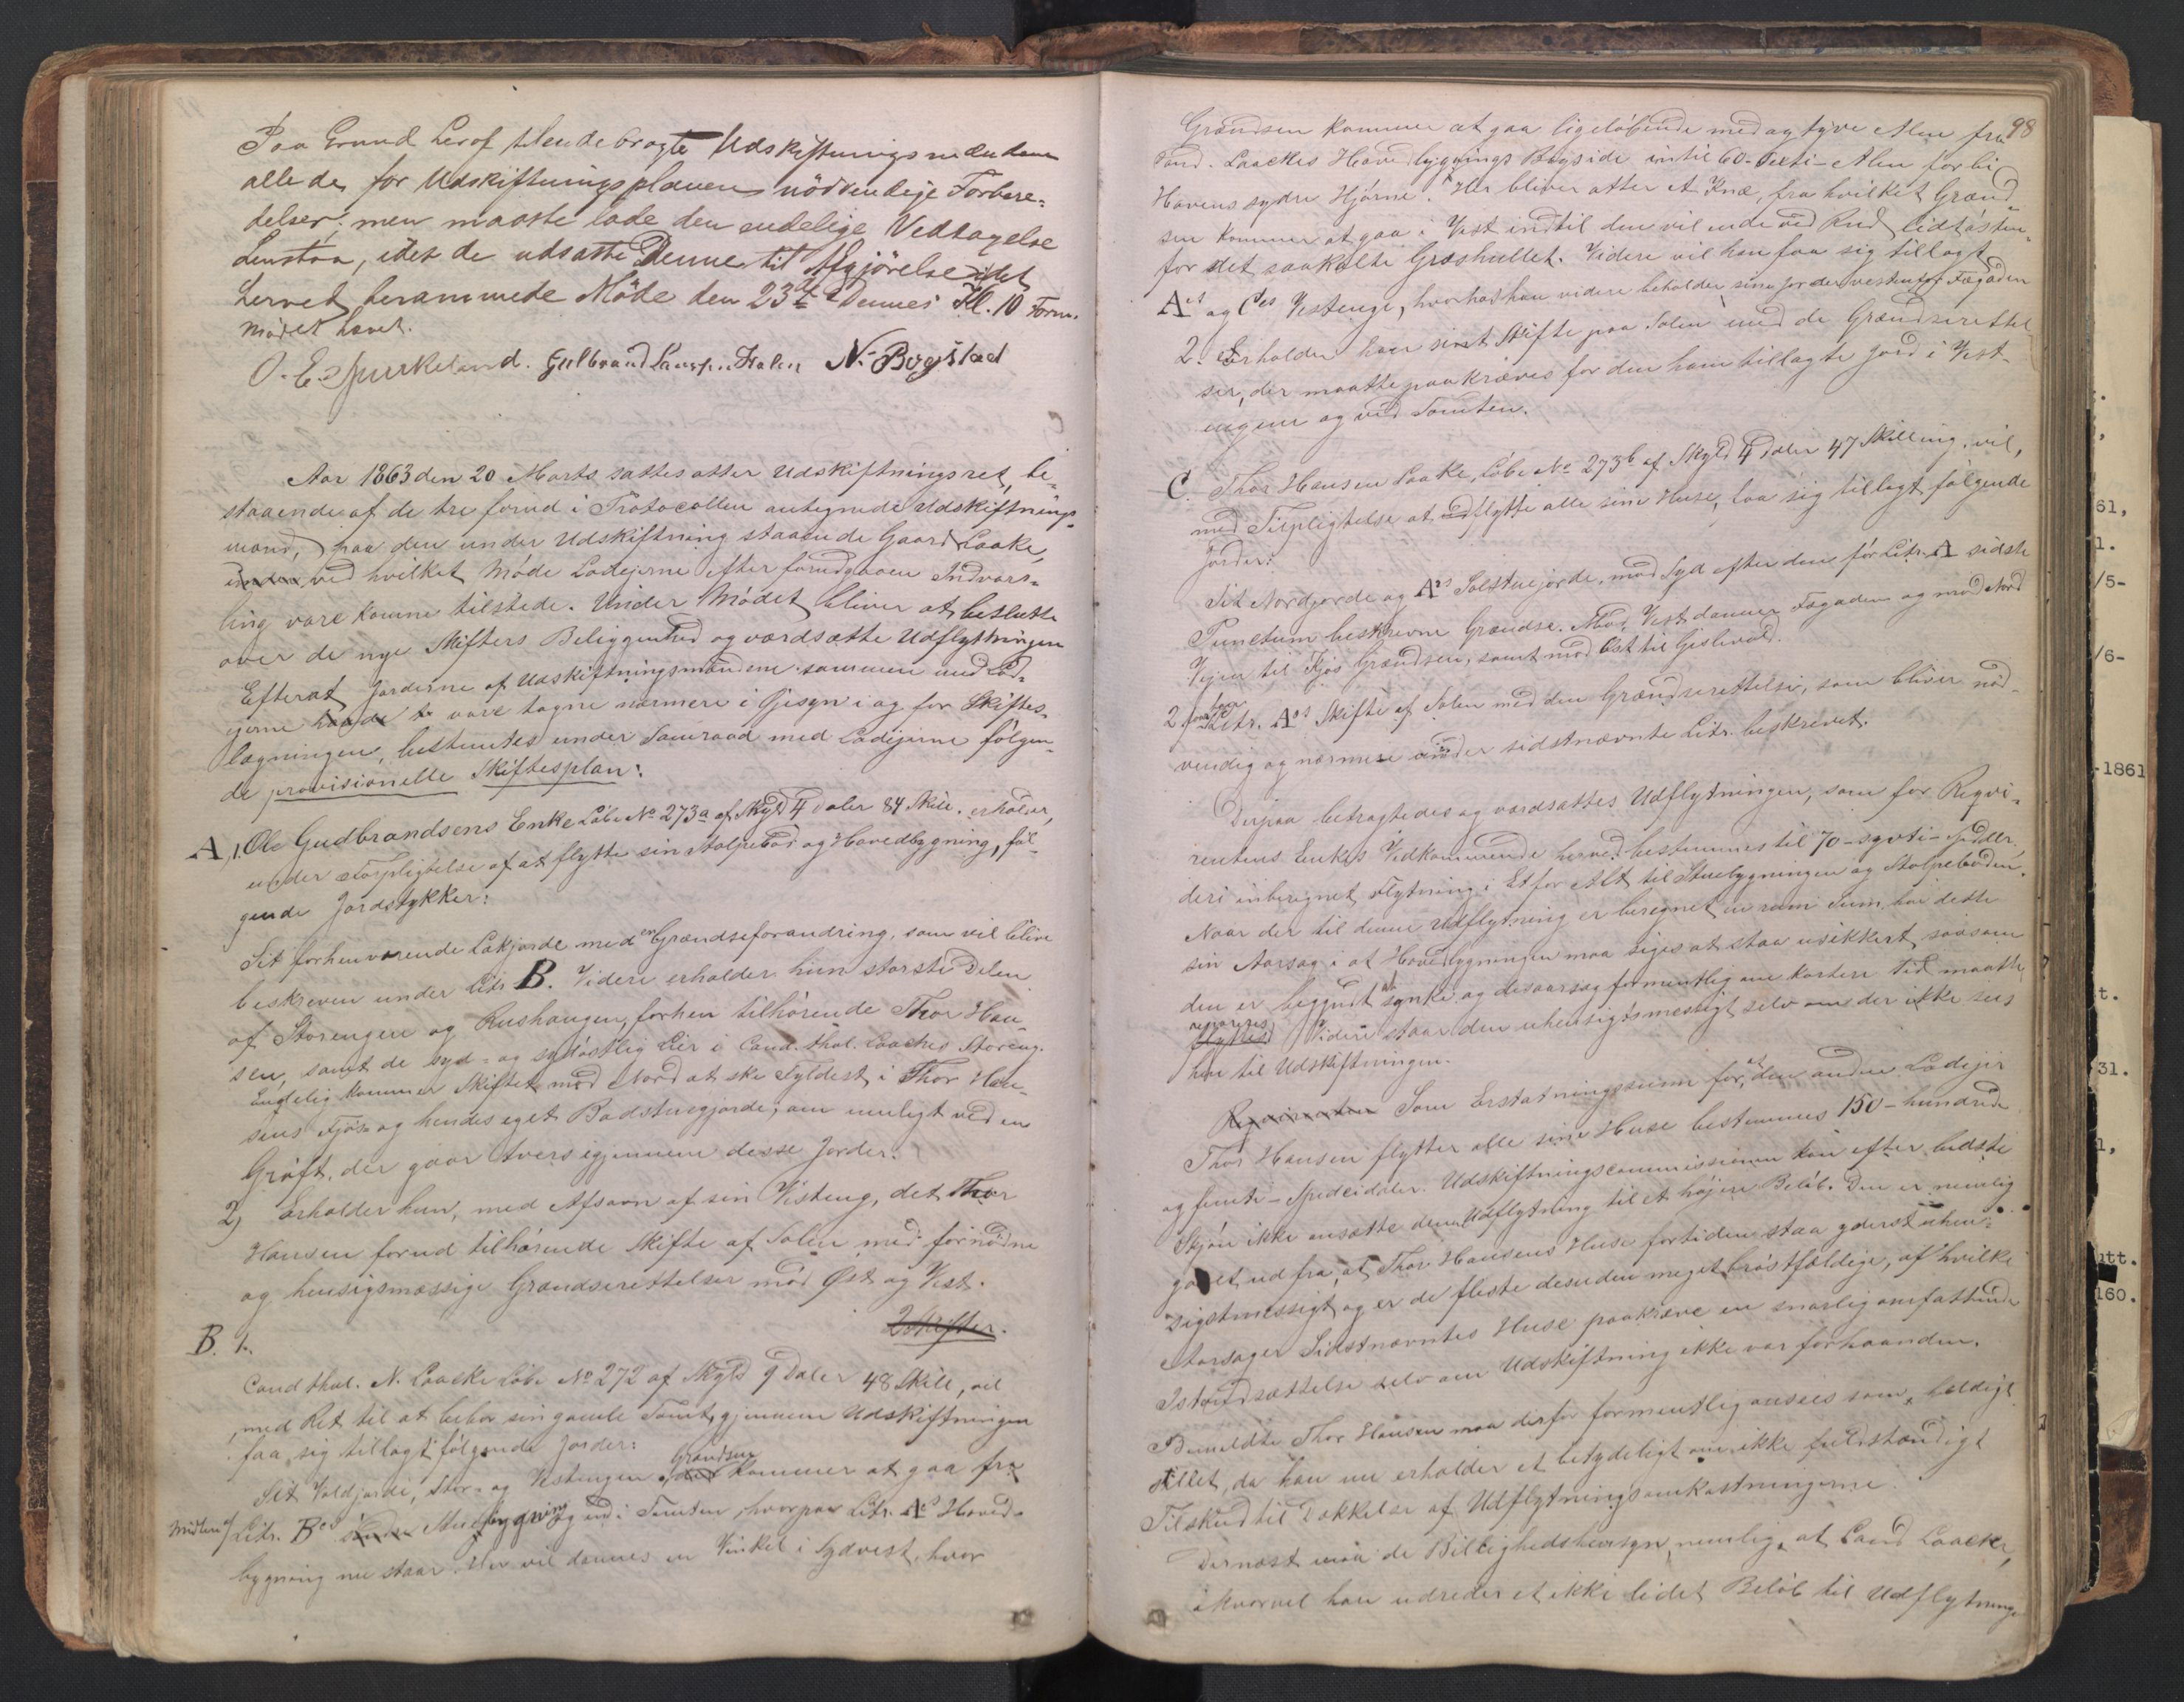 Paa Grund heraf tilendebragte Udskiftningsmændene
alle de, for Udskiftningsplanen nödvendige Forbere-
delser; men maatte lade den endelige Vedtagelse
henstaa, idet de udsatte Denne til Afgjörelse i det
herved berammede Möde den 23de Dennes Kl. 10 Form.
Mödet hævet.
O. E. Spurkeland. Gulbrand Larsen Fralen N. Bogstad
Aar 1863 den 20 Marts sattes atter Udskiftningsret, be-
staaende af de tre forud i Protocollen antegnede Udskiftnings-
mænd, paa den under Udskiftning staaende Gaard Laake,
ved hvilket Möde Lodejerne efter forudgaaen Indvars-
ling vare komne tilstede. Under Mödet bliver at beslutte
over de nye Skifters Beliggenhed og værdsætte Udflytningen
Efterat Jorderne af Udskiftningsmændene sammen med Lod-
ejerne havde vare tagne nærmere i Øjesyn i og for Skiftes-
lægningen, bestemtes under Samraad med Lodejerne følgen-
de provisionelle Skiftesplan:
A, 1. Ole Gudbrandsens Enke Löbe No 273a af Skyld 4 Daler 84 Skill. erholder,
under Forpligtelse af at flytte sin Stolpebod og Hovedbygning, föl-
gende Jordstykker:
Sit forhenværende Lökjorde med en Grændseforandring, som vil blive
beskreven under Litr. B. Videre erholder hun störste Delen
af Storengen og Rushaugen, forhen tilhörende Thor Han-
sen, samt de syd- og sydöstlig Ler i Cand. thol. Laackes Storeng.
Endelig kommer Skiftet mod Nord at ske Fyldest i Thor Han-
sens Fjös- og hendes eget Badstuegjorde, om muligt ved en
Gröft, der gaar tvers igjennem desse Jorder.
2) Erholder hun, med Afsavn af sin Vesteng, det Thor
Hansen forud tilhörende Skifte af Solen med fornödne
og hensigsmæssige Grændserettelser mod Øst og Vest.
2 Skifter.
B. 1.
Cand thol. N. Laacke Löbe No 272 af Skyld 9 Daler 48 Skill, vil
med Ret til at beboe sin gamle Tomt, gjennem Udskiftningen
faa sig tillagt følgende Jorder:
Sit Voldjorde, Stor- og Vestengen. Grændsen kommer at gaa fra
Midten af Litr. Bes söndre Stuebygning og ud i Tomten, hvorpaa Litr. Aes Hoved-
bygning nu staar. Her vil dannes en Vinkel i Sydvest, hvor
98
Grændsen kommer at gaa ligelöbende med og tyve Alen fra
Cand. Laackes Hovedbygnings Bagside indtil 60-sexti-Alen forbi
Havens sydre Hjörne. Her bliver atter et Knæ, fra hvilket Grænd-
sen kommer at gaa i Vest indtil den vil ende ved Rud Ledtösten
for det saakaldte Græshullet. Videre vil han faa sig tillagt
Aes og Ces Vestenge, hvorhos han videre beholder sine Jorder vestenfor Fægaden
2. Erholder han sinet Skifte paa Solen med de Grændserettel-
ser, der maatte paakræves for den ham tillagte Jord i Vest-
engene og ved Tomten.
C. Thor Hansen Laake, Löbe No 273b af Skyld 4 Daler 47 Skilling, vil,
med Tilpligtelse at udflytte alle sine Huse, faa sig tillagt følgende
Jorder:
Sit Nordjorde og Aes Solstuejorde, mod Syd efter den för Litr. A sidste
Punctum beskrevne Grændse. Mod Vest danner Fægaden og mod Nord
Vejen til Fjös Grændsen, samt mod Øst til Gislevold.
2. faar han Litr. Aes Skifte af Solen med den Grændserettelse, som bliver nöd-
vendig og nærmere under sidstnævnte Litr. beskrevet.
Derpaa betragtedes og værdsattes Udflytningen, som for Reqvi-
rentens Enkes Vedkommende herved bestemmes til 70-sytti-Spdlr,
deri inberegnet Flytning i Et for Alt til Stuebygningen og Stolpeboden.
Naar der til denne Udflytning er beregnet en rum Sum, har dette
sin Aarsag i at Hovedbygningen maa siges at staa usikkert, saasom
den er begyndt at synke og desaarsag formentlig om kortere Tid maatte
repareres. Videre staar den uhensigtsmessigt selv om der ikke sees
hen til Udskiftningen.
Som Erstatningssum for, at den anden Lodejer
Thor Hansen flytter alle sine Huse bestemmes 150-hundrede
og femti-Speciedaler. Udskiftningscommissionen kan efter bedste
Skjön ikke ansætte denne Udflytning til et höjere Belöb. Den er nemlig
gaaet ud fra, at Thor Hansens Huse fortiden staa yderst uhen-
sigstmessigt og er de fleste desuden meget bröstfældige, af hvilke
Aarsager Sidstnævntes Huse paakræve en snarlig omfattende
Istandsættelse selv om Udskiftning ikke var forhaanden.
Bemeldte Thor Hansen maa derfor formentlig ansees som heldigt
stillet, da han nu erholder et betydeligt om ikke fuldstændigt
Tilskud til Dækkelse af Udflytningsomkostningerne.
Dernæst maa de Billighedshensyn, nemlig, at Cand Laacke,
ihvorvel han udreder et ikke lidet Belöb til Udflytnings
61,
1.
/5-
/6-
-1861
t.
31.
1,
itt.
160.